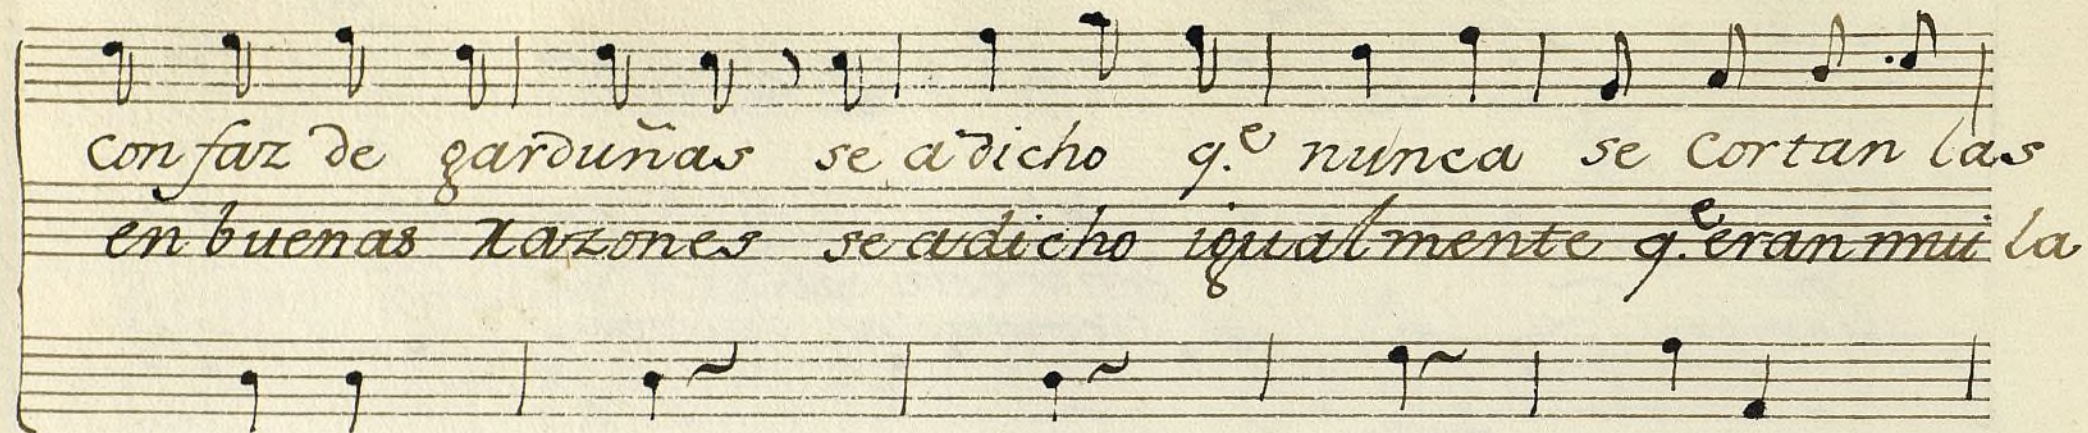 con faz de garduñas se a dicho q.e nunca se cortan las
en buenas razones se a dicho igualmente q.e eran mui la